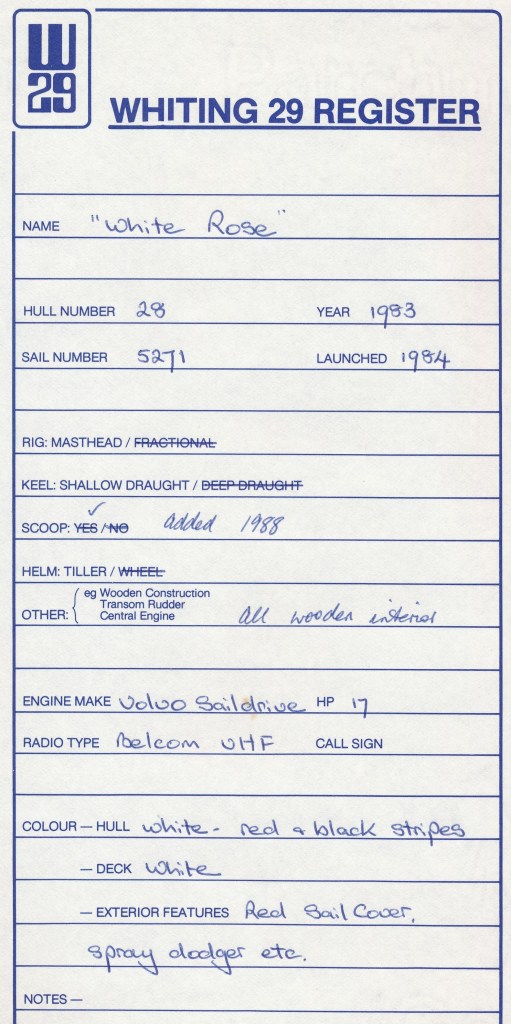 W
29
WHITING 29 REGISTER
NAME "White Rose"
HULL NUMBER 28 YEAR 1983
SAIL NUMBER 5271 LAUNCHED 1984
RIG: MASTHEAD / FRACTIONAL
KEEL: SHALLOW DRAUGHT / DEEP DRAUGHT
SCOOP: YES / NO ✓ added 1988
HELM: TILLER / WHEEL
eg Wooden Construction
Transom Rudder
OTHER: { Central Engine all wooden interior
ENGINE MAKE Volvo Saildrive HP 17
RADIO TYPE Belcom VHF CALL SIGN
COLOUR — HULL white - red & black stripes
— DECK White
— EXTERIOR FEATURES Red Sail Cover,
spray dodger etc.
NOTES —